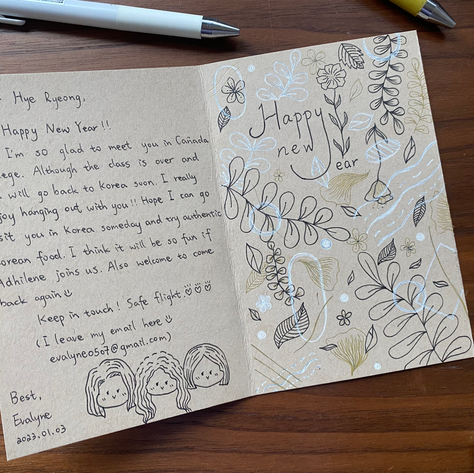 Hye Ryeong,
Happy New Year!!
I'm so glad to meet you in Cañada
ege. Although the class is over and
will go back to Korea soon. I really
joy hanging out with you!! Hope I can go
sit you in Korea someday and try authentic
orean food. I think it will be so fun if
Adhilene joins us. Also welcome to come
back again
Keep in touch! Safe flight.
(I leave my email here
evalyne0507@gmail.com)
Best,
Evalyne
2023.01.03
Happy
new
Year